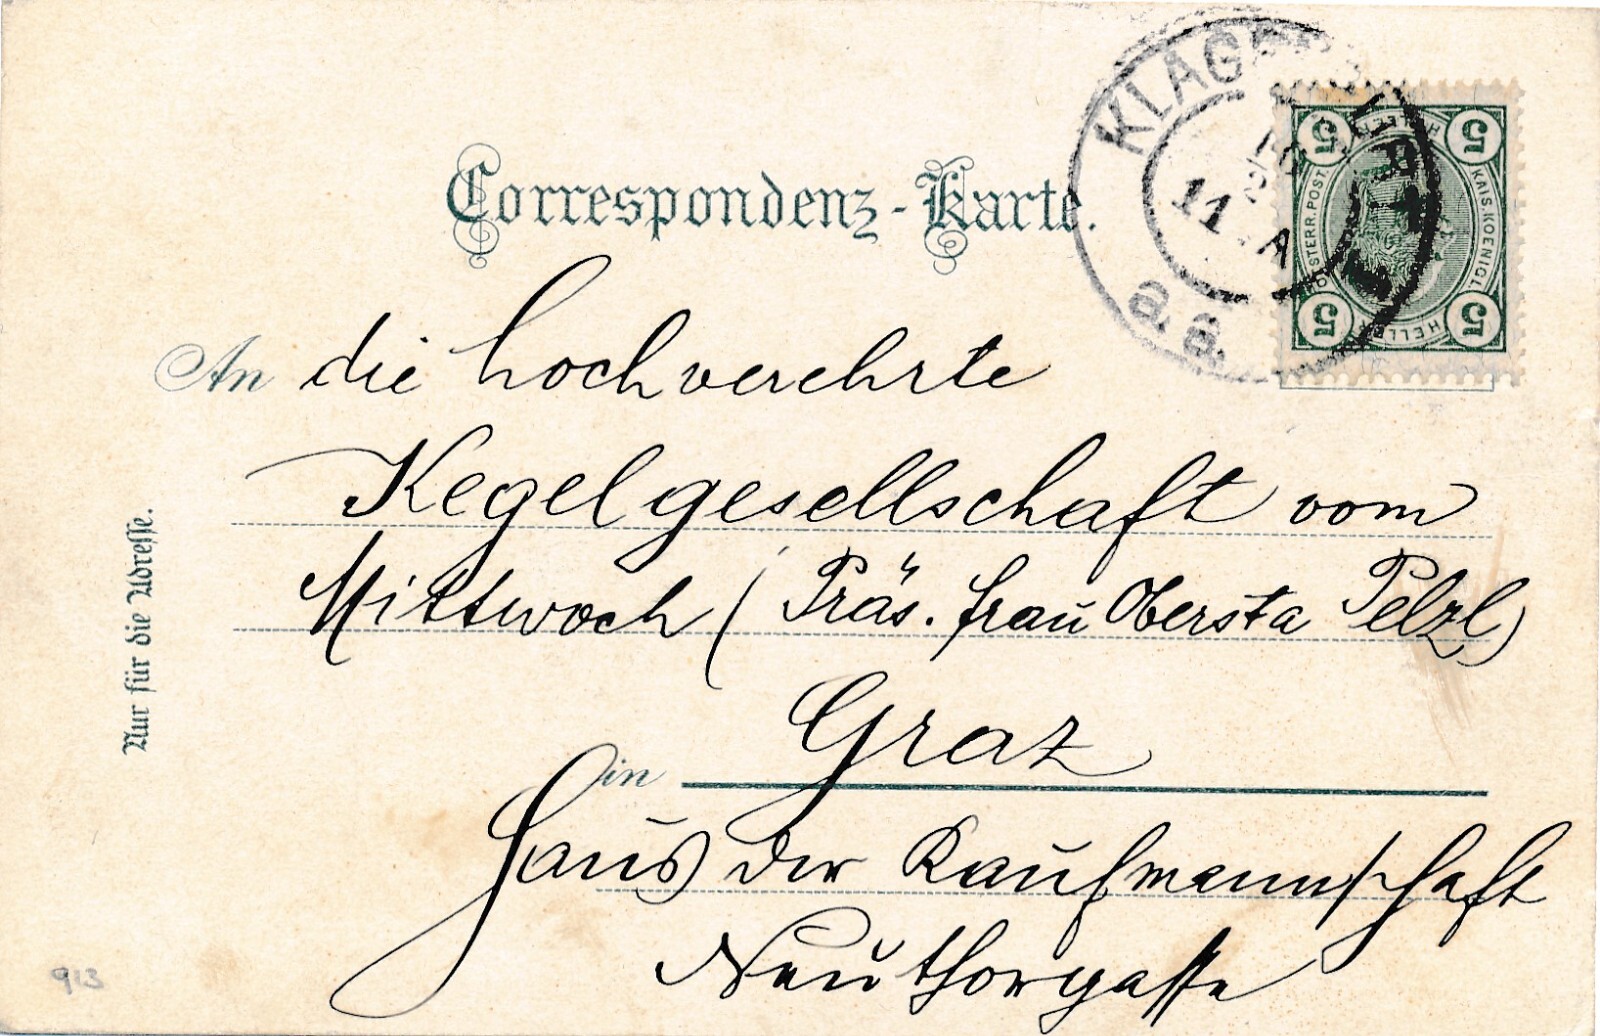 Correspondenz-Karte.
KLAGENFURT
11 A
5 5
KAIS. KOENIGL.
OESTERR. POST
HELLER
5 5
An die hochverehrte
Kegelgesellschaft vom
Mittwoch (Präs. Frau Obersta Pelzl)
in Graz
Haus der Kaufmannschaft
Neuthorgasse
Nur für die Adresse.
913